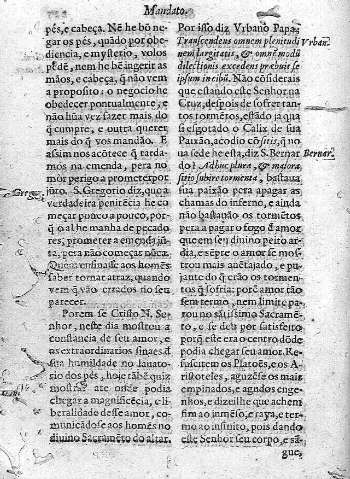 Mandato.
pés, e cabeça. Nẽ he bõ ne-
gar os pés, quãdo por obe-
diencia, e mysterio, volos
pẽde, nem he bẽ ingerir as
mãos, e cabeça, q̃ não vem
a proposito: o negocio he
obedecer pontualmente, e
não hũa vez fazer mais do
q̃ cumpre, e outra querer
mais do q̃ vos mandão. E
assim nos acõtece q̃ tarda-
mos na emenda, pera no
mór perigo a prometer por
jũto. S. Gregorio diz, que a
verdadeira penitẽcia he co-
meçar pouco a pouco, por-
q̃ o al he manha de pecado-
res, prometer a emenda jũ-
ta, pera não começar nũca.
aos homẽs
saber tornar atraz, quando
vem q̃ vão errados no seu
parecer.
Porem se Cristo N. Se-
nhor, neste dia mostrou a
constancia de seu amor, e
os extraordinarios sinaes d
sua humildade no lauato-
rio dos pés, hoje tãbẽ quiz
mostrar até onde podia
chegar a magnificẽcia, e li-
beralidade desse amor, co-
municãdose aos homẽs no
diuino Sacramẽto do altar.
Por isso diz Vrbano Papa:
Transcendens omnem plenitudi
Vrban.
nem largitatis, & omnẽ modũ
dilectionis excedens prebuit se
ipsum in cibũ. Não cõsiderais
que estando este Senhor na
Cruz, despois de sofrer tan-
tos tormẽtos, estãdo ja qua
si esgotado o Calix de sua
Paixão, acodio cõ sitis, q̃ no
na sede he esta, diz S. Bernar
Bernar.
do? Adhuc plura, & maiora
sitio subire tormenta, bastaua
sua paixão pera apagar as
chamas do inferno, e ainda
não bastauão os tormẽtos
pera a pagar o fogo d̃ amor
que em seu diuino peito ar-
dia, e sẽpre o amor se mos-
trou mais auẽtajado, e pu-
jante do q̃ erão os tormen-
tos q̃ sofria: porẽ amor tão
sem termo, nem limite pa-
rou no sãtissimo Sacramẽ-
to, e se deu por satisfeito
porq̃ este era o centro dõde
podia chegar seu amor. Re-
suscitem os Platoẽs, e os A-
ristoteles, aguzẽse os mais
empinados, e agudos enge-
nhos, e dizeilhe que achem
fim ao imẽso, e raya, e ter-
mo ao infinito, pois dando
este Senhor seu corpo, e sã-
gue,